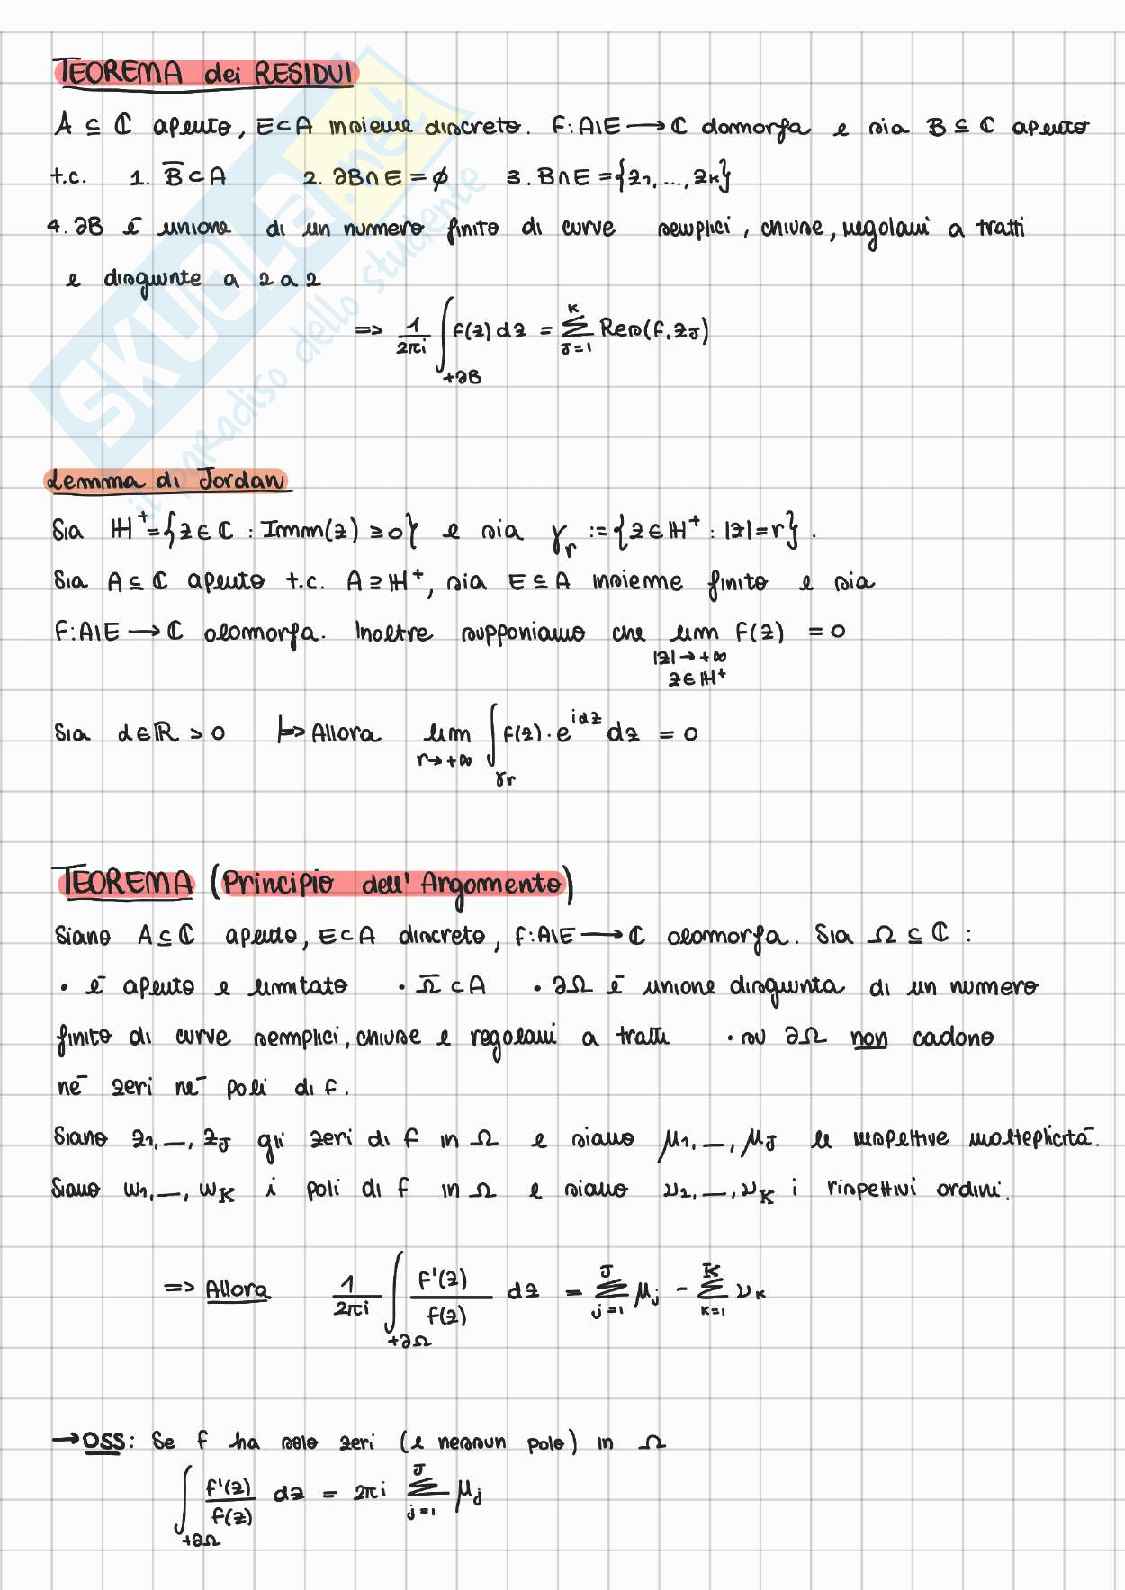 TEOREMA dei RESIDUI
A ⊆ ℂ aperto, E⊂A insieme discreto. f: A\E → ℂ olomorfa e sia B ⊆ ℂ aperto
t.c. 1. B̅ ⊂ A 2. ∂B∩E = ϕ 3. B∩E = {z₁, ..., zₖ}
4. ∂B è unione di un numero finito di curve semplici, chiuse, regolari a tratti
e disgiunte a 2 a 2
=> 1/2πi ∫_{+∂B} f(z) dz = Σ_{J=1}^{K} Res(f, z_J)
Lemma di Jordan
Sia ℍ⁺ = {z ∈ ℂ : Imm(z) ≥ 0} e sia γ_r := {z ∈ ℍ⁺ : |z| = r}.
Sia A ⊆ ℂ aperto t.c. A ⊇ ℍ⁺, sia E ⊆ A insieme finito e sia
f: A\E → ℂ olomorfa. Inoltre supponiamo che lim_{|z|→+∞, z∈ℍ⁺} f(z) = 0
Sia α ∈ ℝ > 0 |=> Allora lim_{r→+∞} ∫_{γ_r} f(z)·e^{iαz} dz = 0
TEOREMA (Principio dell'Argomento)
Siano A ⊆ ℂ aperto, E⊂A discreto, f: A\E → ℂ olomorfa. Sia Ω ⊆ ℂ :
• è aperto e limitato • Ω̅ ⊂ A • ∂Ω è unione disgiunta di un numero
finito di curve semplici, chiuse e regolari a tratti • su ∂Ω non cadono
nè zeri nè poli di f.
Siano z₁, —, z_J gli zeri di f in Ω e siano μ₁, —, μ_J le rispettive molteplicità.
Siano w₁, —, w_K i poli di f in Ω e siano ν₂, —, ν_K i rispettivi ordini.
=> Allora 1/2πi ∫_{+∂Ω} f'(z)/f(z) dz = Σ_{j=1}^{J} μ_j - Σ_{k=1}^{K} ν_k
→ OSS: Se f ha solo zeri (e nessun polo) in Ω
∫_{+∂Ω} f'(z)/f(z) dz = 2πi Σ_{j=1}^{J} μ_j
SKUOLA.net
il paradiso dello studente